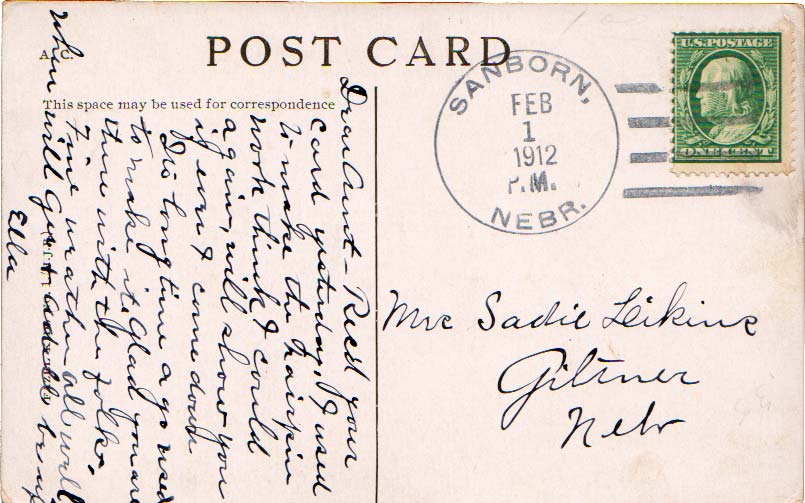 POST CARD
A. C.
This space may be used for correspondence
U.S. POSTAGE
ONE CENT
SANBORN,
FEB
1
1912
P.M.
NEBR.
Dear Aunt - Rec'd your
card yesterday, I used
to make the hairpin
work think I could
again, will show you
if ever I come down
Tis long time ago used
to make it, Glad you are
there with the folks.
Fine weather all well
when will Gert be up
Ella
Mrs Sadie Leikins
Giltner
Nebr